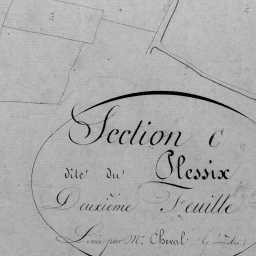 Section C
dite du Plessix
Deuxième Feuille
Levée par Mr. Cheval